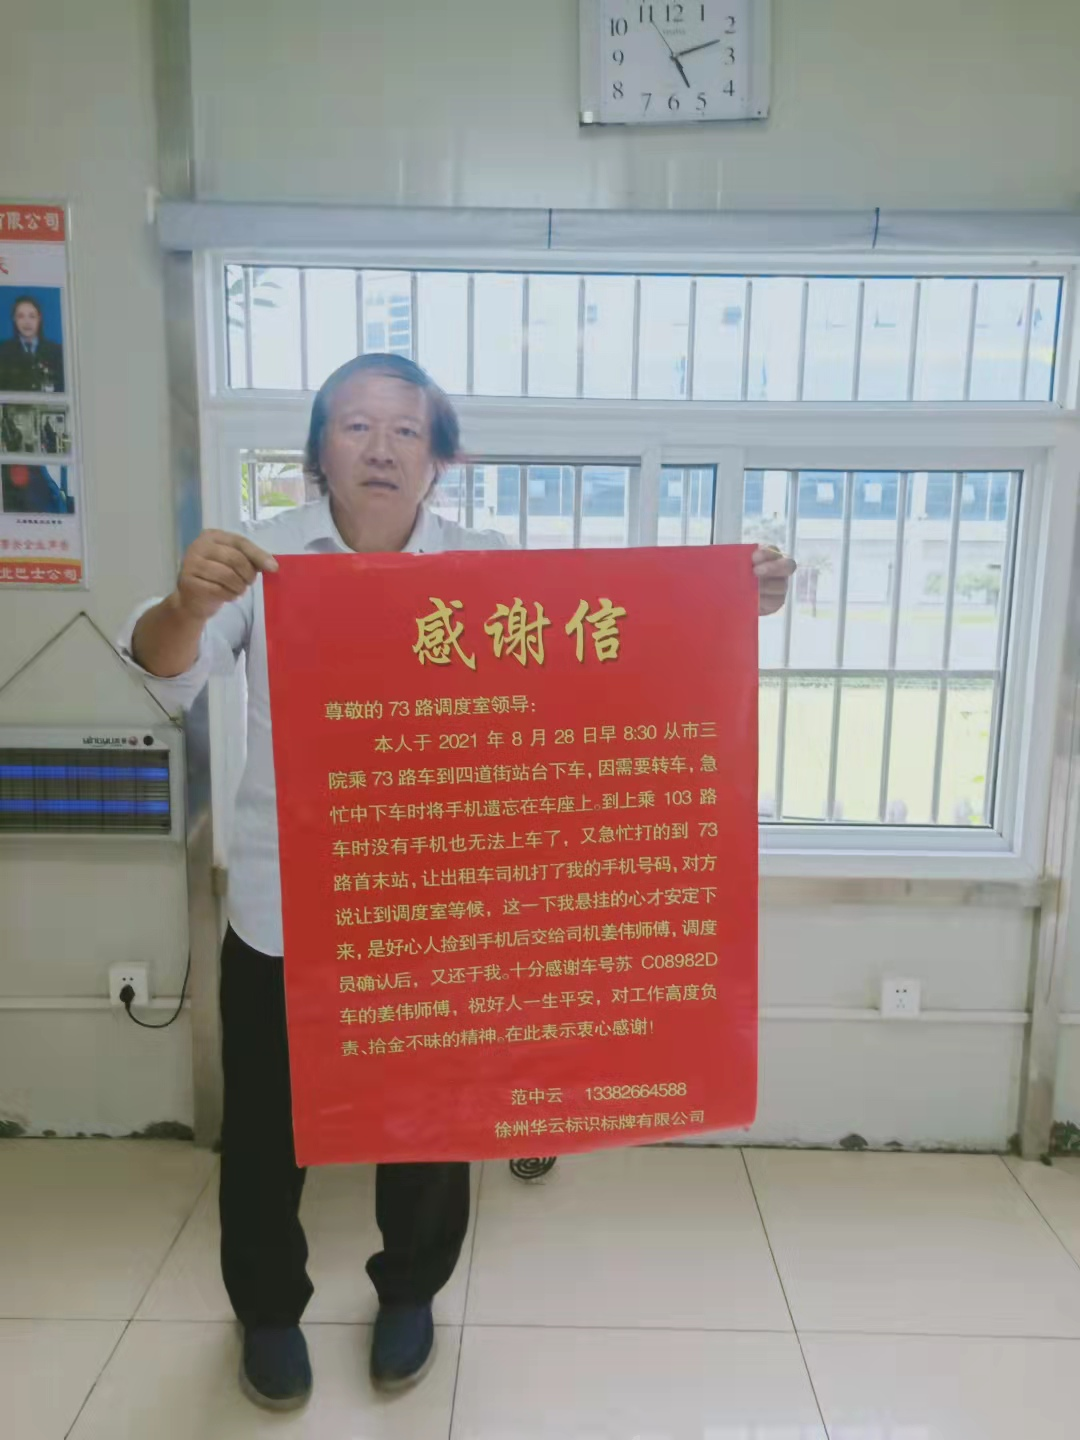 11 12 1
10 2
9 3
8 4
7 6 5
有限公司
北巴士公司
yingyu
感谢信
尊敬的 73 路调度室领导：
本人于 2021 年 8 月 28 日早 8:30 从市三
院乘 73 路车到四道街站台下车，因需要转车，急
忙中下车时将手机遗忘在车座上。到上乘 103 路
车时没有手机也无法上车了，又急忙打的到 73
路首末站，让出租车司机打了我的手机号码，对方
说让到调度室等候，这一下我悬挂的心才安定下
来，是好心人捡到手机后交给司机姜伟师傅，调度
员确认后，又还于我。十分感谢车号苏 C08982D
车的姜伟师傅，祝好人一生平安，对工作高度负
责、拾金不昧的精神。在此表示衷心感谢！
范中云 13382664588
徐州华云标识标牌有限公司